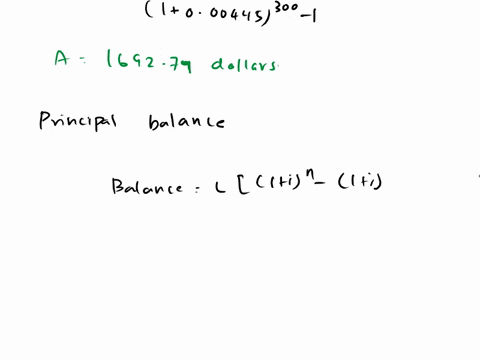 (1+0.00445)^300 -1
A = 1692.79 dollars
Principal balance
Balance = L [ (1+i)^n - (1+i)